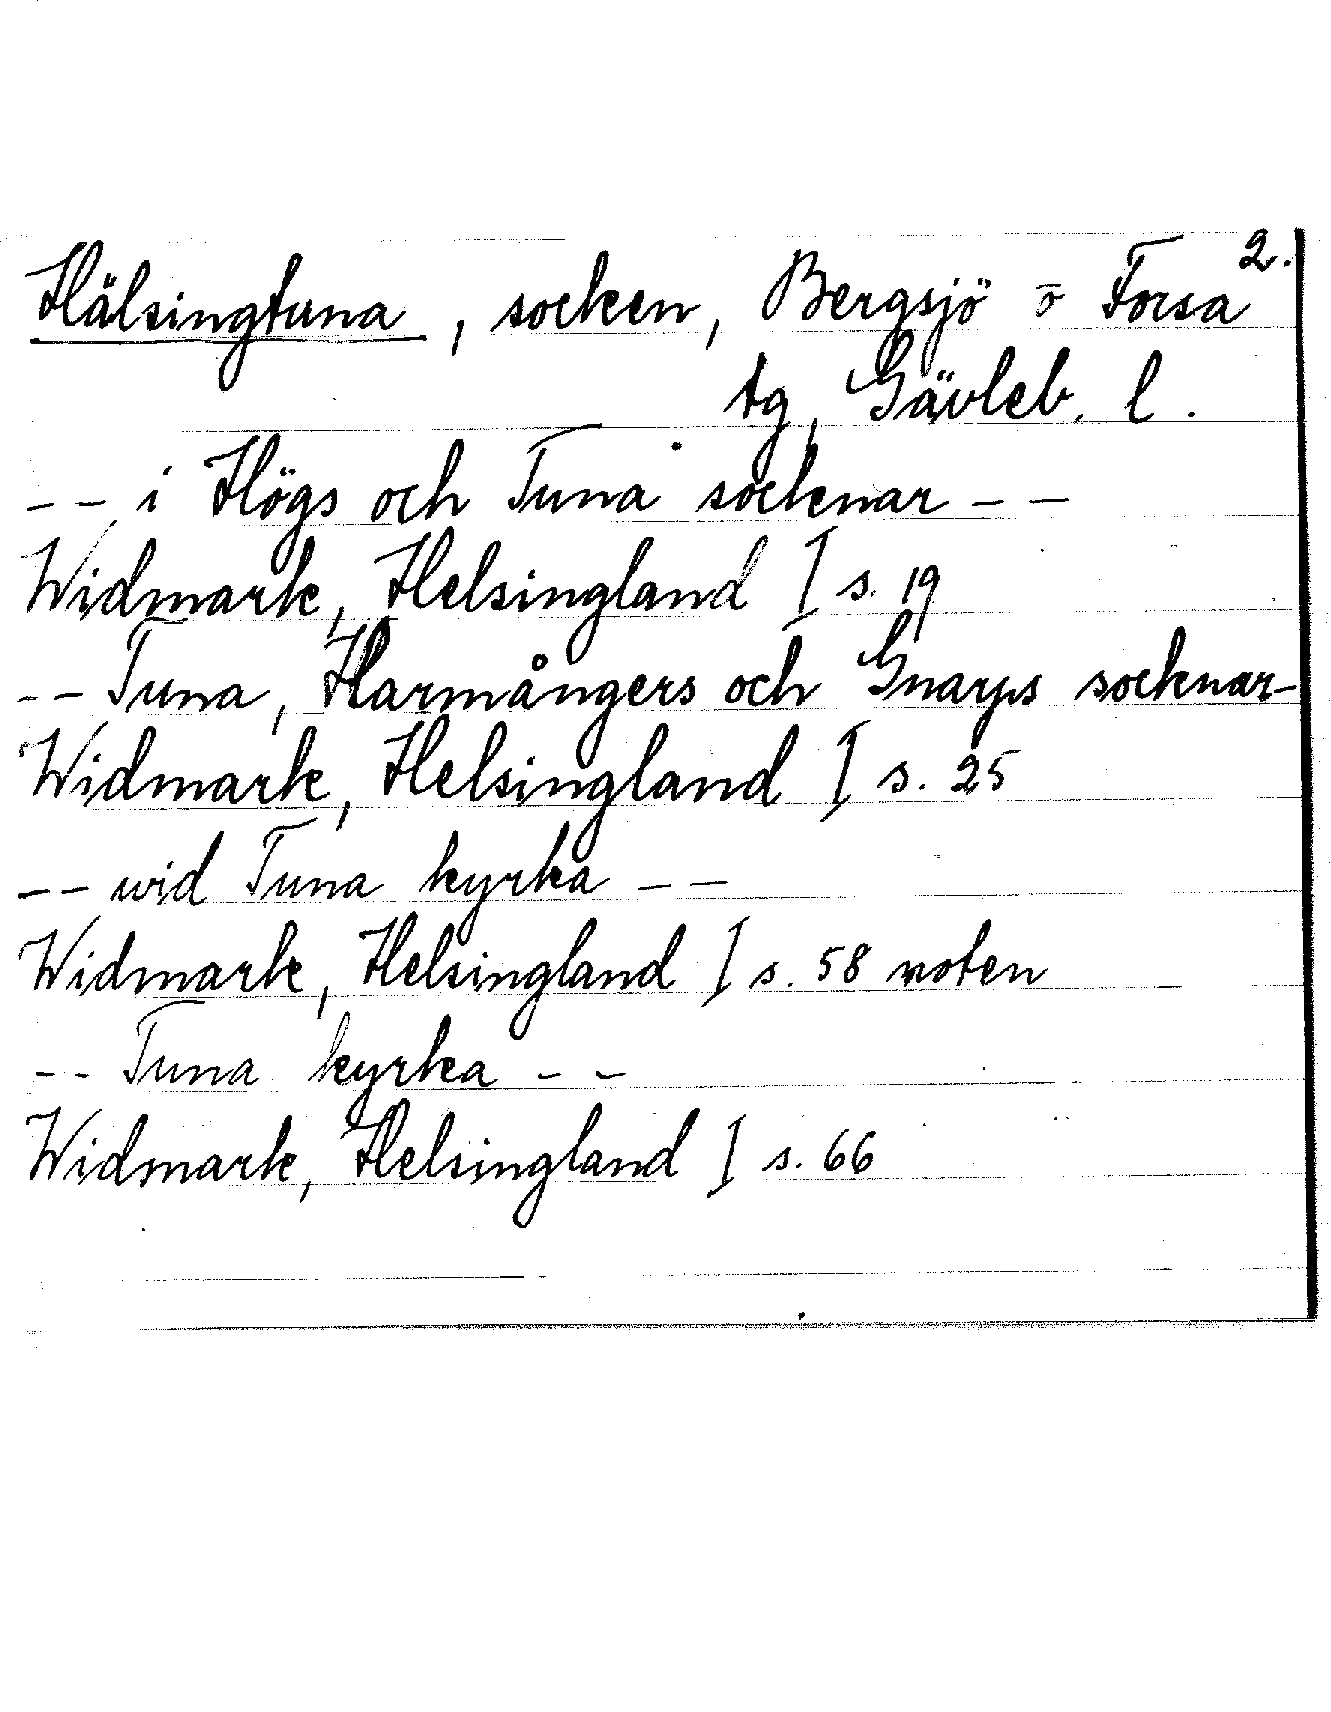 2.
Hälsingtuna, socken, Bergsjö o Forsa
tg, Gävleb. l.
-- i Högs och Tuna socknar --
Widmark, Helsingland I s. 19
-- Tuna, Harmångers och Gnarps socknar-
Widmark, Helsingland I s. 25
-- wid Tuna kyrka --
Widmark, Helsingland I s. 58 noten
-- Tuna kyrka --
Widmark, Helsingland I s. 66